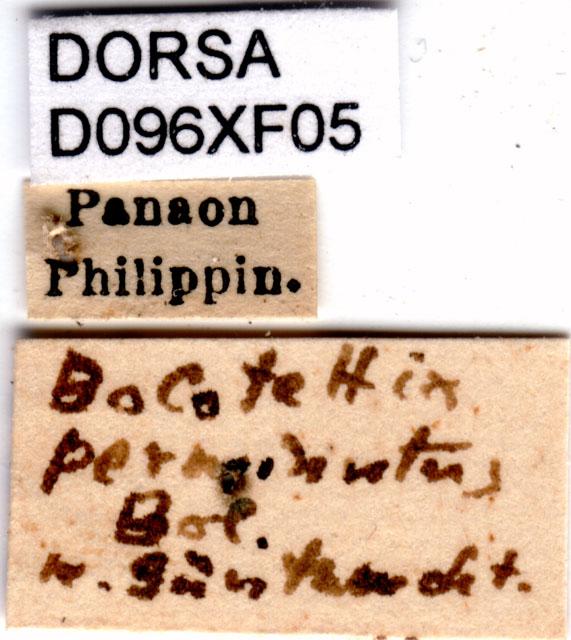 DORSA
D096XF05
Panaon
Philippin.
Bocotettix
perminutus
Bol.
n. Günther det.